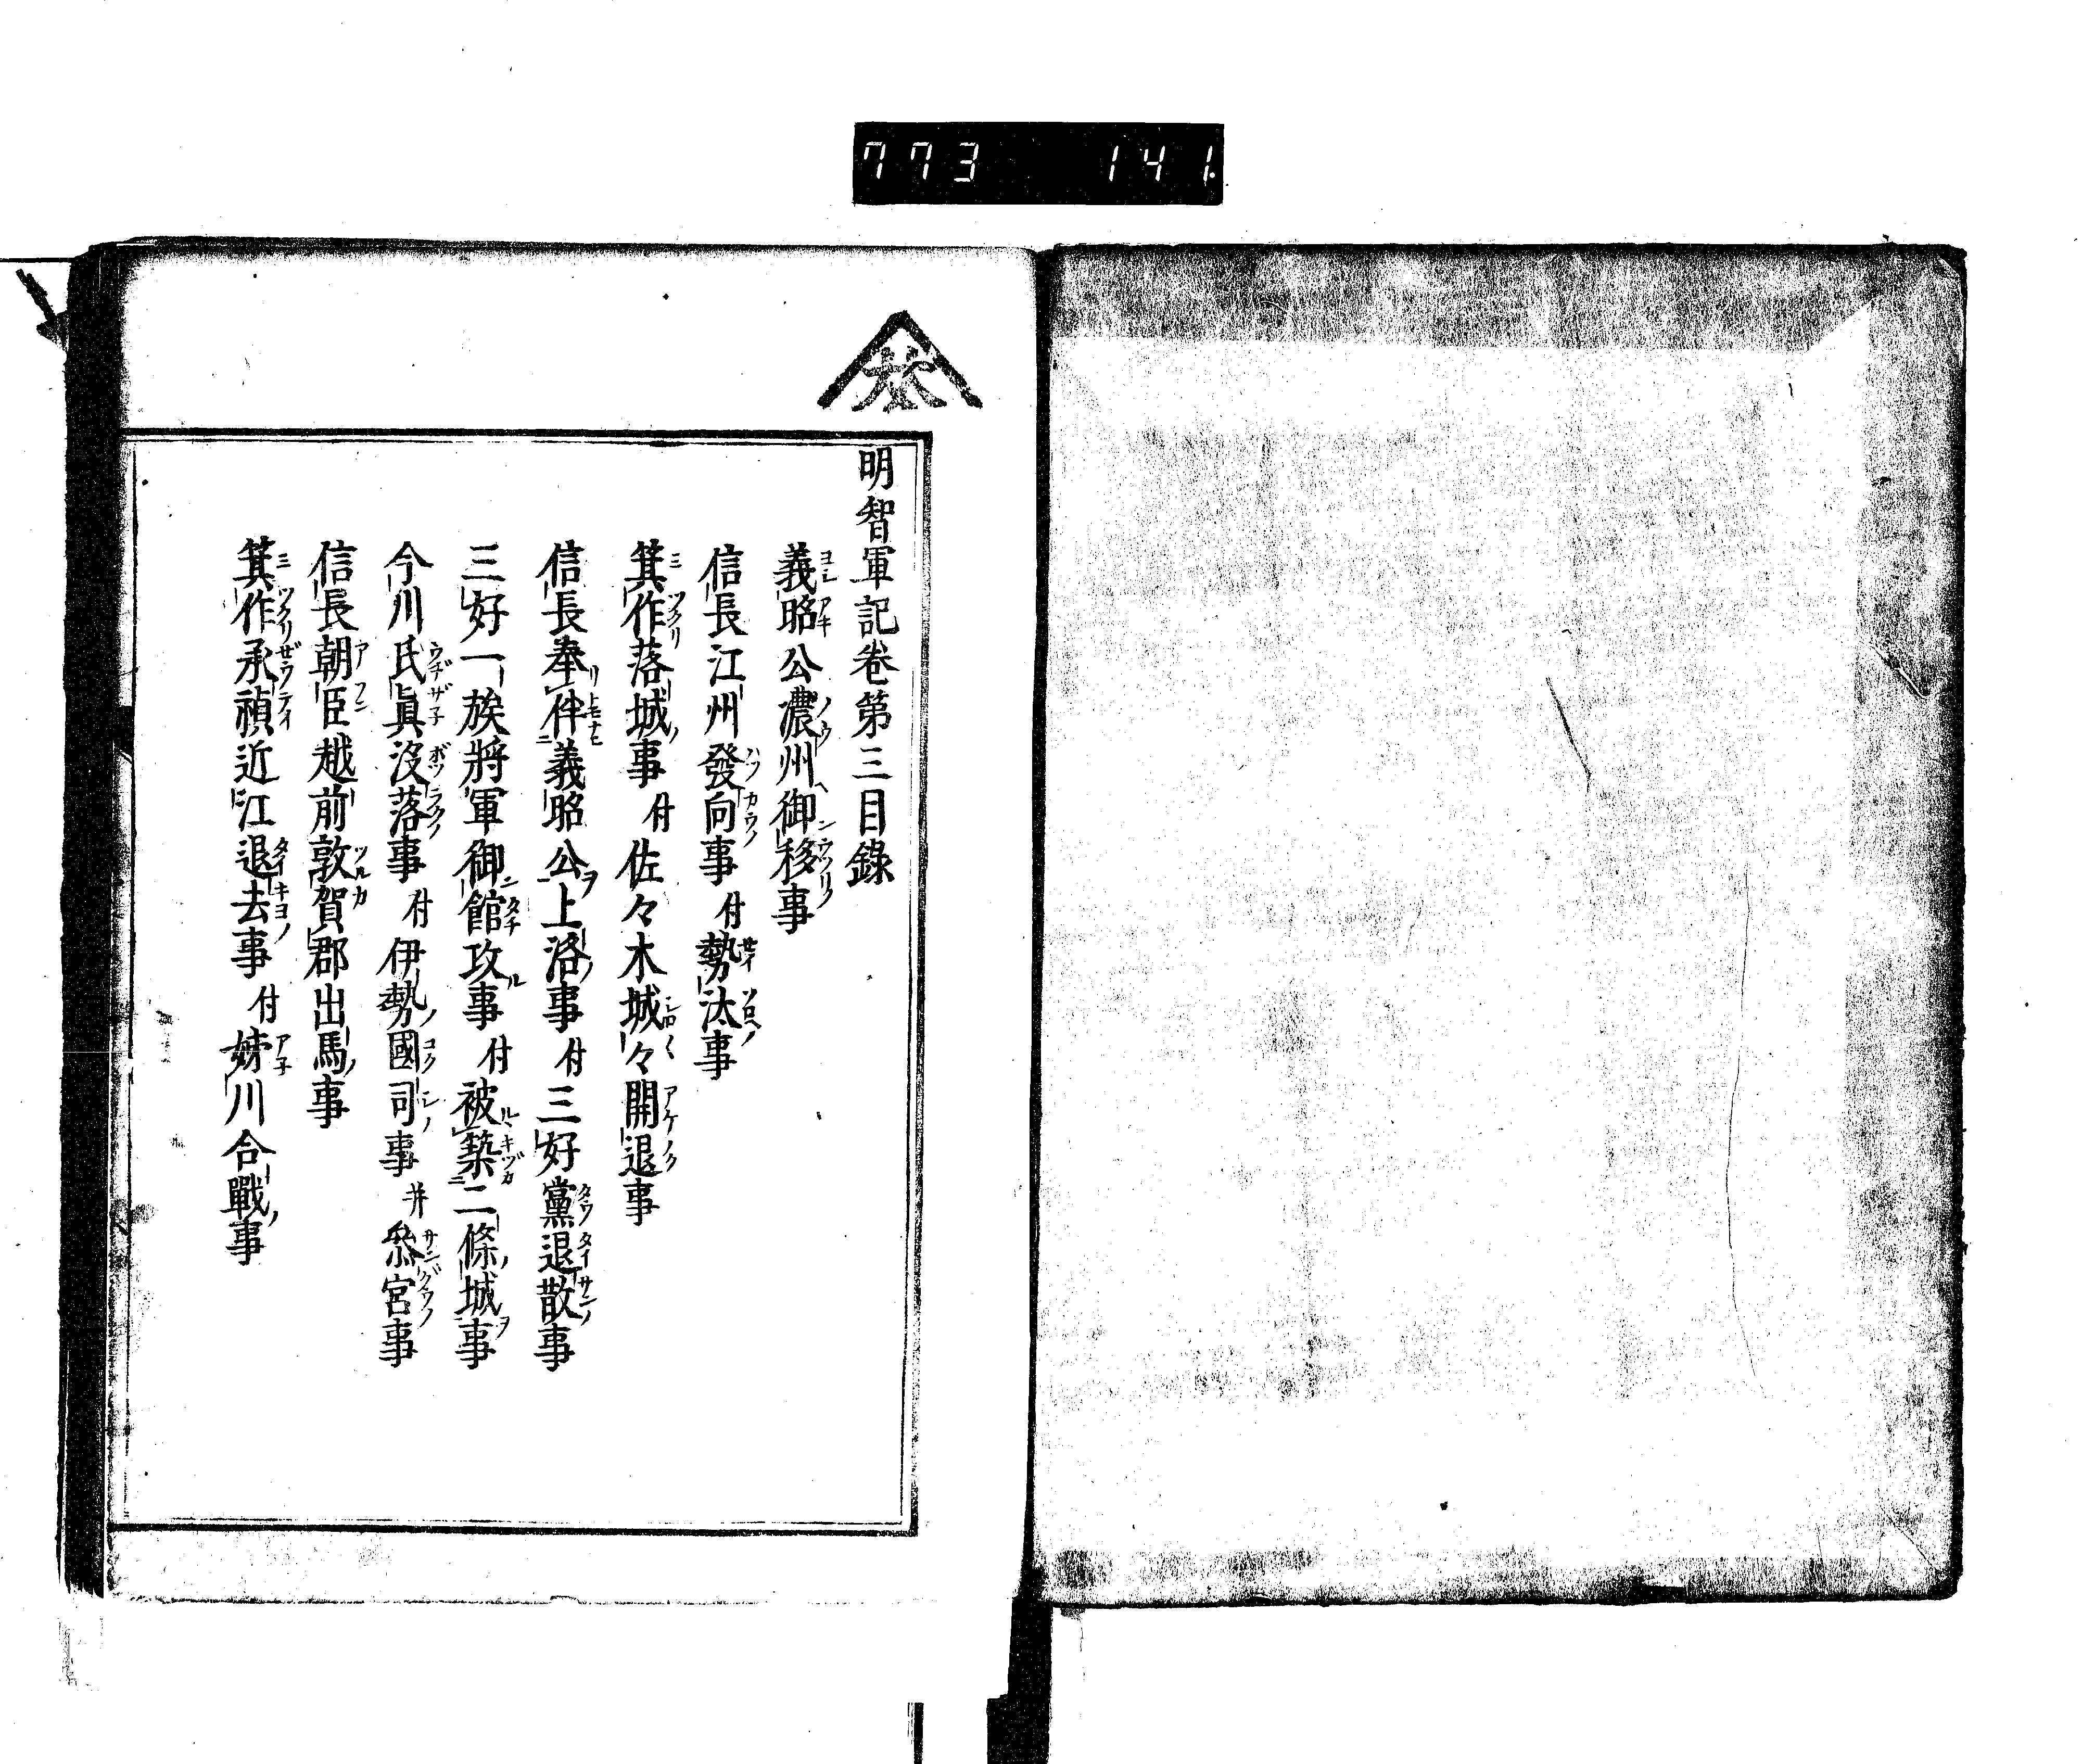 773 141
明智軍記卷第三目錄
義昭公濃州御移事
信長江州發向事付勢汰事
箕作落城事付佐々木城々開退事
信長奉伴義昭公上洛事付三好黨退散事
三好一族將軍御館攻事付被築二條城事
今川氏眞没落事付伊勢國司事并叅宮事
信長朝臣越前敦賀郡出馬事
箕作承禎近江退去事付姉川合戰事